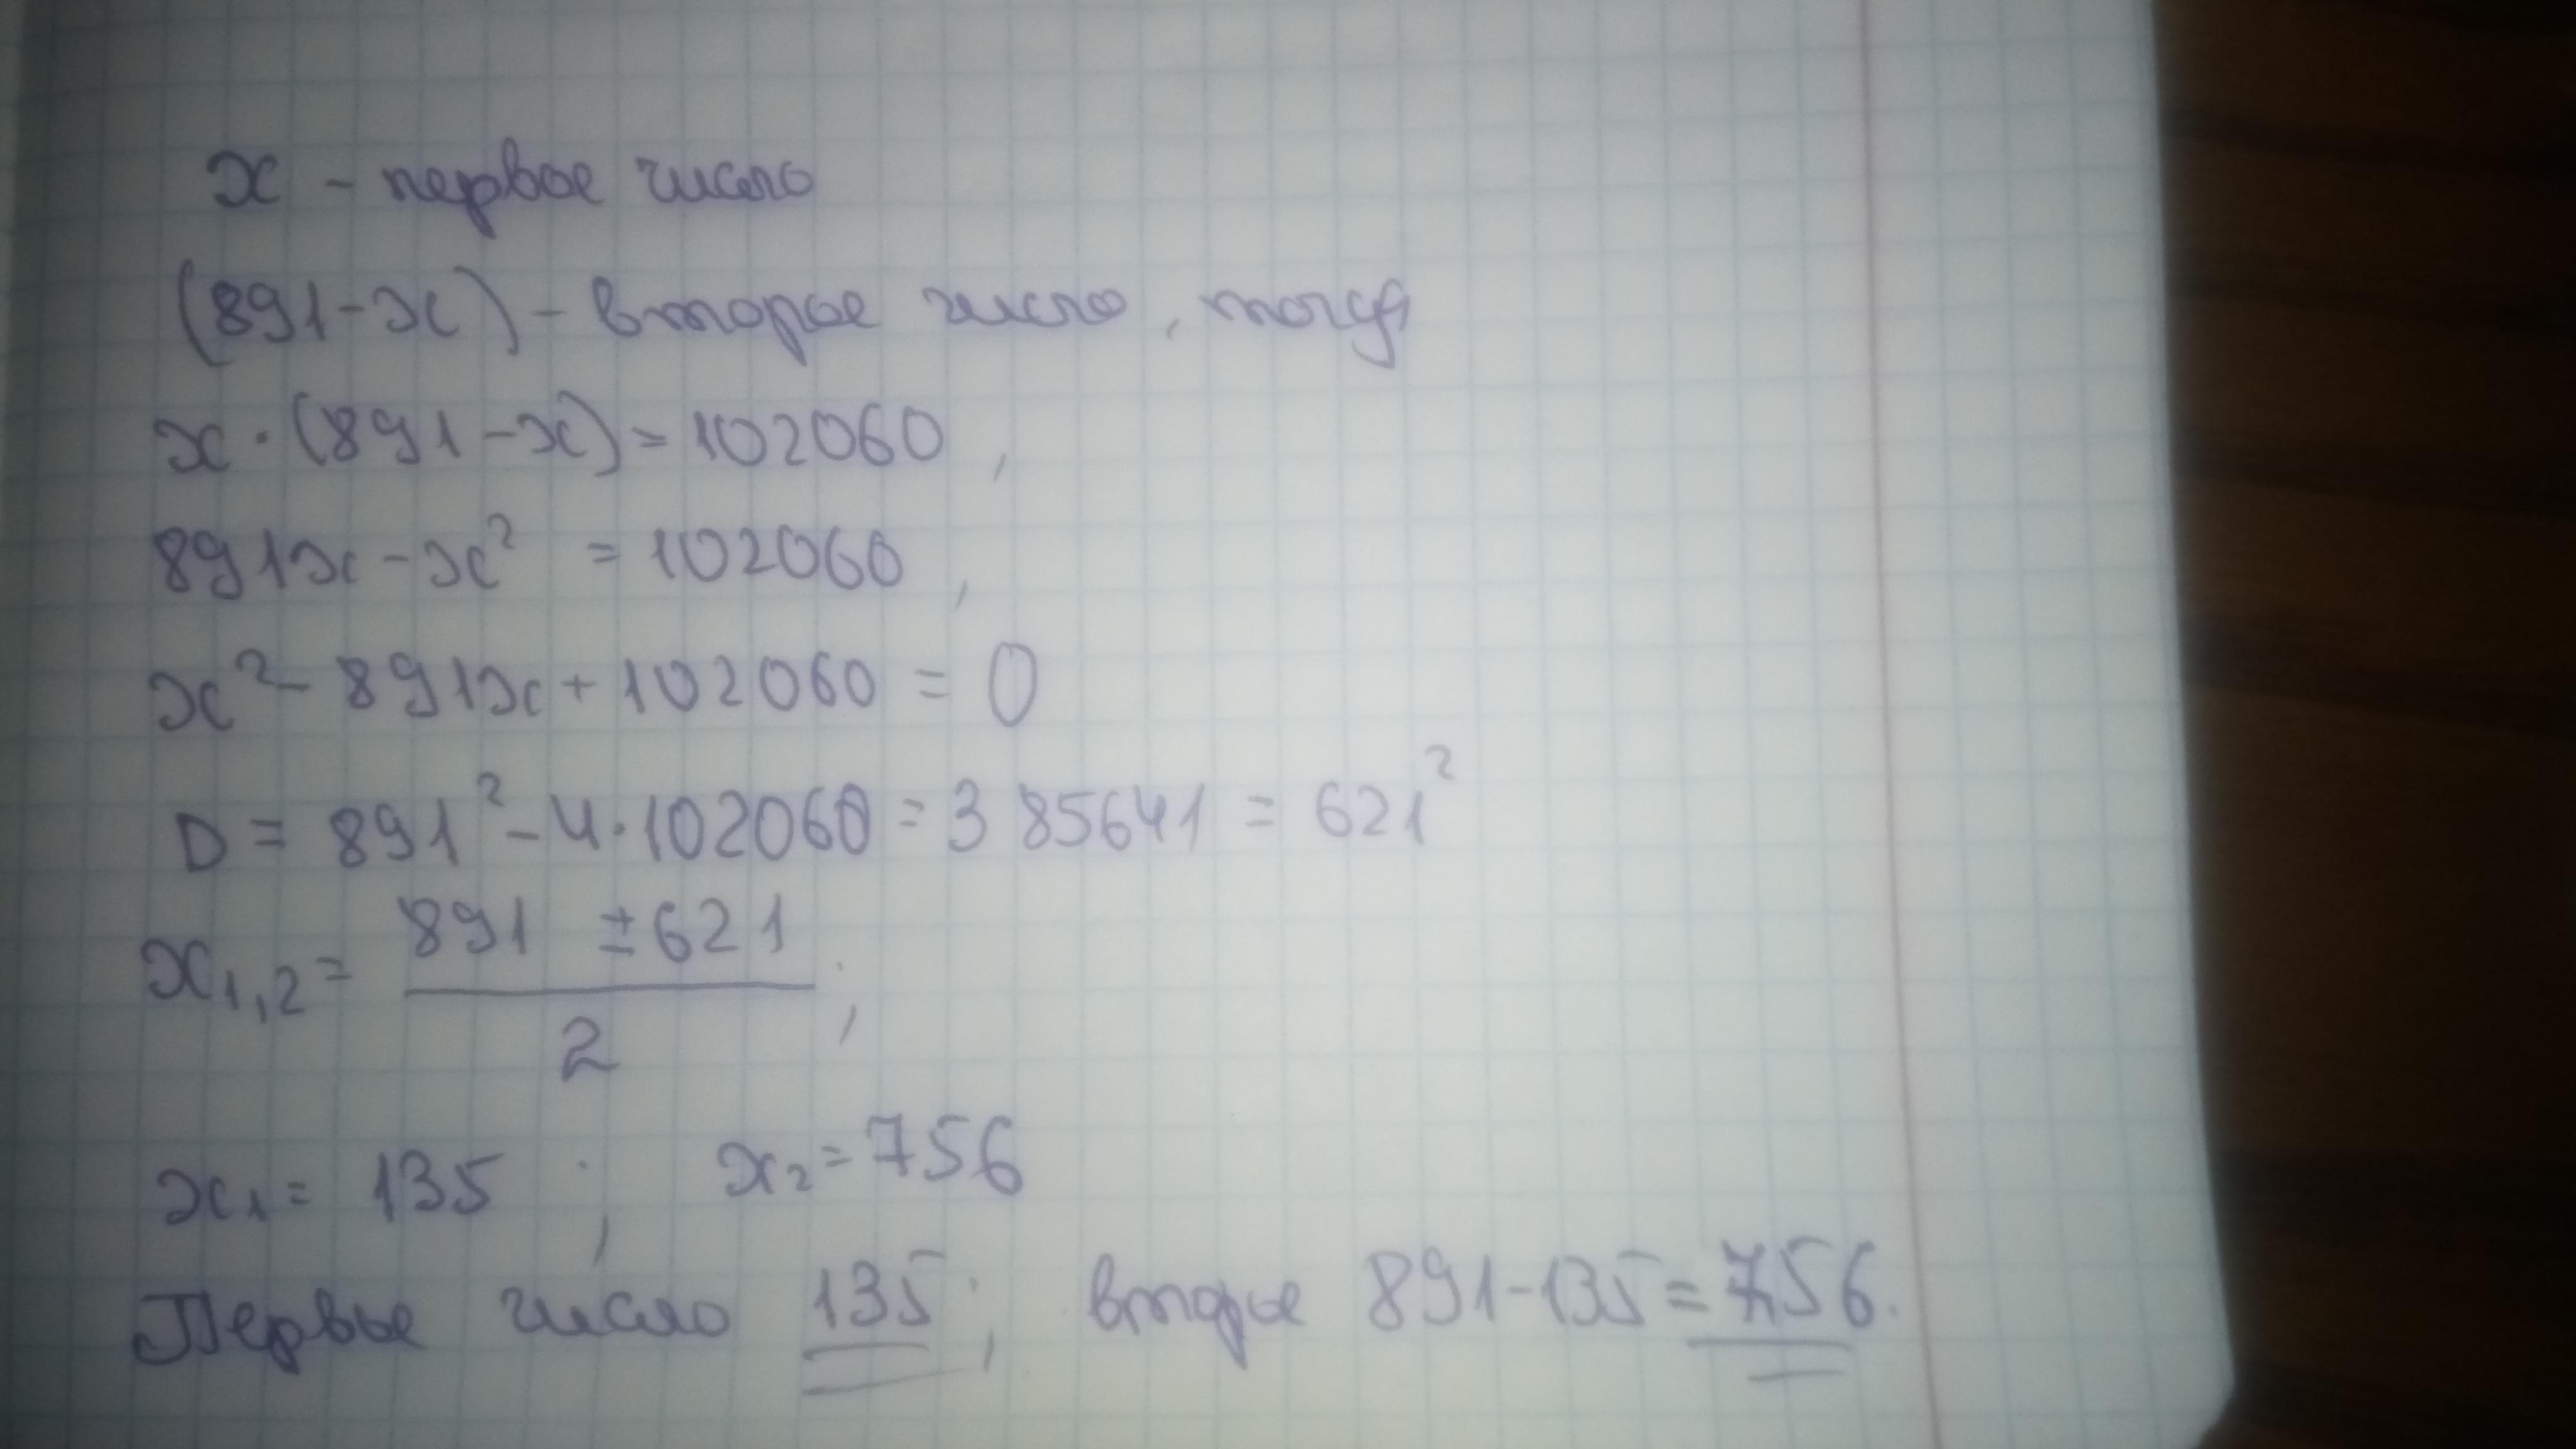 x - первое число
(891-x) - второе число, тогда
x · (891-x) = 102060,
891x - x² = 102060,
x² - 891x + 102060 = 0
D = 891² - 4·102060 = 385641 = 621²
x₁,₂ = (891 ± 621) / 2 ;
x₁ = 135 ; x₂ = 756
Первое число 135; второе 891-135=756.